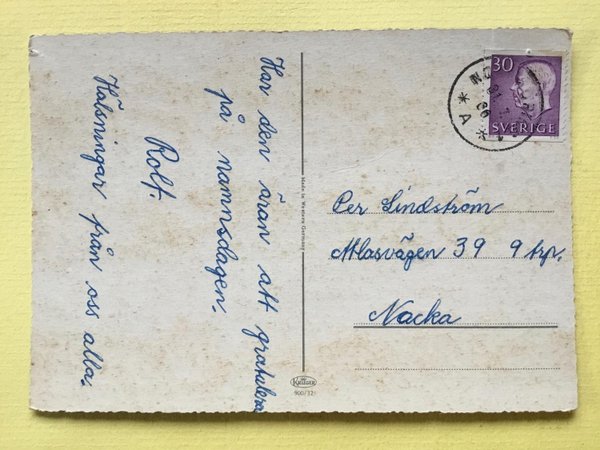 Har den äran att gratulera
på namnsdagen.
Rolf.
Hälsningar från oss alla.
Made in Western Germany
KRÜGER
900/321
30
SVERIGE
* A *
Per Lindström
Atlasvägen 39 9 trp.
Nacka